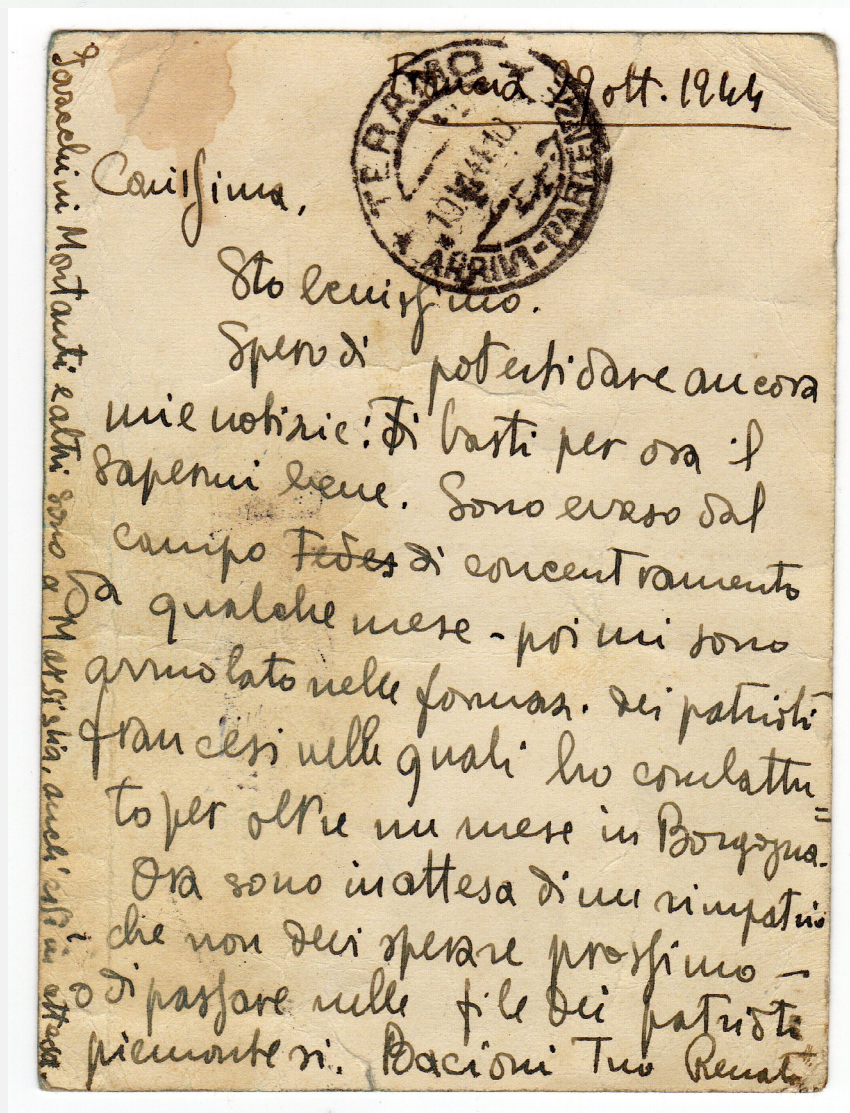 Francia 29 ott. 1944
TERAMO
ARRIVI-PARTENZE
Carissima,
Sto benissimo.
Spero di poterti dare ancora
mie notizie: Ti basti per ora il
sapermi bene. Sono evaso dal
campo Fedes di concentramento
da qualche mese - poi mi sono
arruolato nelle formaz. dei patrioti
francesi nelle quali ho combattu=
to per oltre un mese in Borgogna.
Ora sono in attesa di un rimpatrio
che non devi sperare prossimo -
o di passare nelle file dei patrioti
piemontesi. Bacioni Tuo Renato
Montanti e altri sono a Marsiglia, anch'essi in attesa.